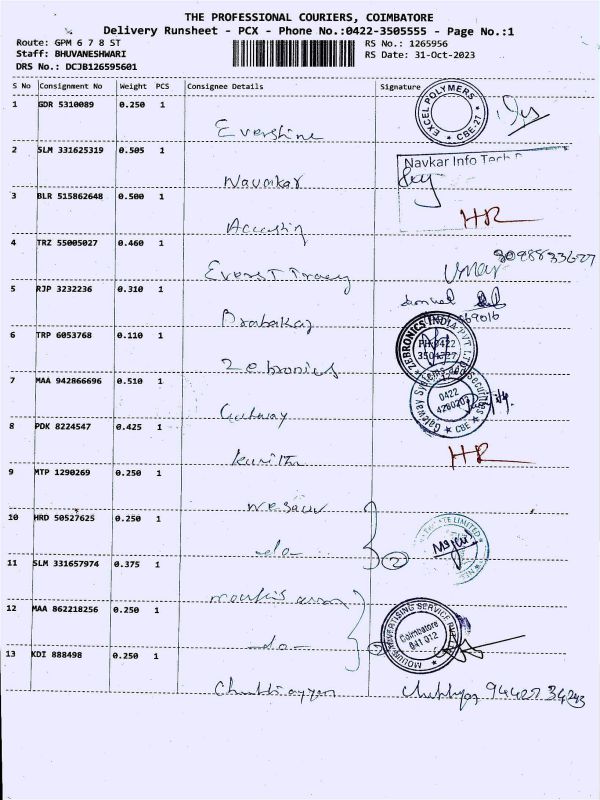 THE PROFESSIONAL COURIERS, COIMBATORE
Delivery Runsheet - PCX - Phone No.:0422-3505555 - Page No.:1
Route: GPM 6 7 8 ST
RS No.: 1265956
Staff: BHUVANESHWARI
RS Date: 31-Oct-2023
DRS No.: DCJB126595601
S No Consignment No Weight PCS Consignee Details Signature
1 GDR 5310089 0.250 1
EXCEL POLYMERS
★ CBE-27 ★
Evershine
2 SLM 331625319 0.505 1
Navkar Info Tech
Navakar
3 BLR 515862648 0.500 1
HR
4 TRZ 55005027 0.460 1
9098833627
Umar
Everst Tracy
5 RJP 3232236 0.310 1
69016
Brabakar
6 TRP 6053768 0.110 1
ZEBRONICS INDIA PVT LTD
PH:0422
3504727
Zebronics
7 MAA 942866696 0.510 1
Gateway Systems and Securities
0422
★ CBE ★
Gateway
8 PDK 8224547 0.425 1
HR
9 MTP 1290269 0.250 1
10 HRD 50527625 0.250 1
LIMITED
-do-
2
11 SLM 331657974 0.375 1
12 MAA 862218256 0.250 1
ADVERTISING SERVICE
Coimbatore
641 012
-do-
13 KDI 888498 0.250 1